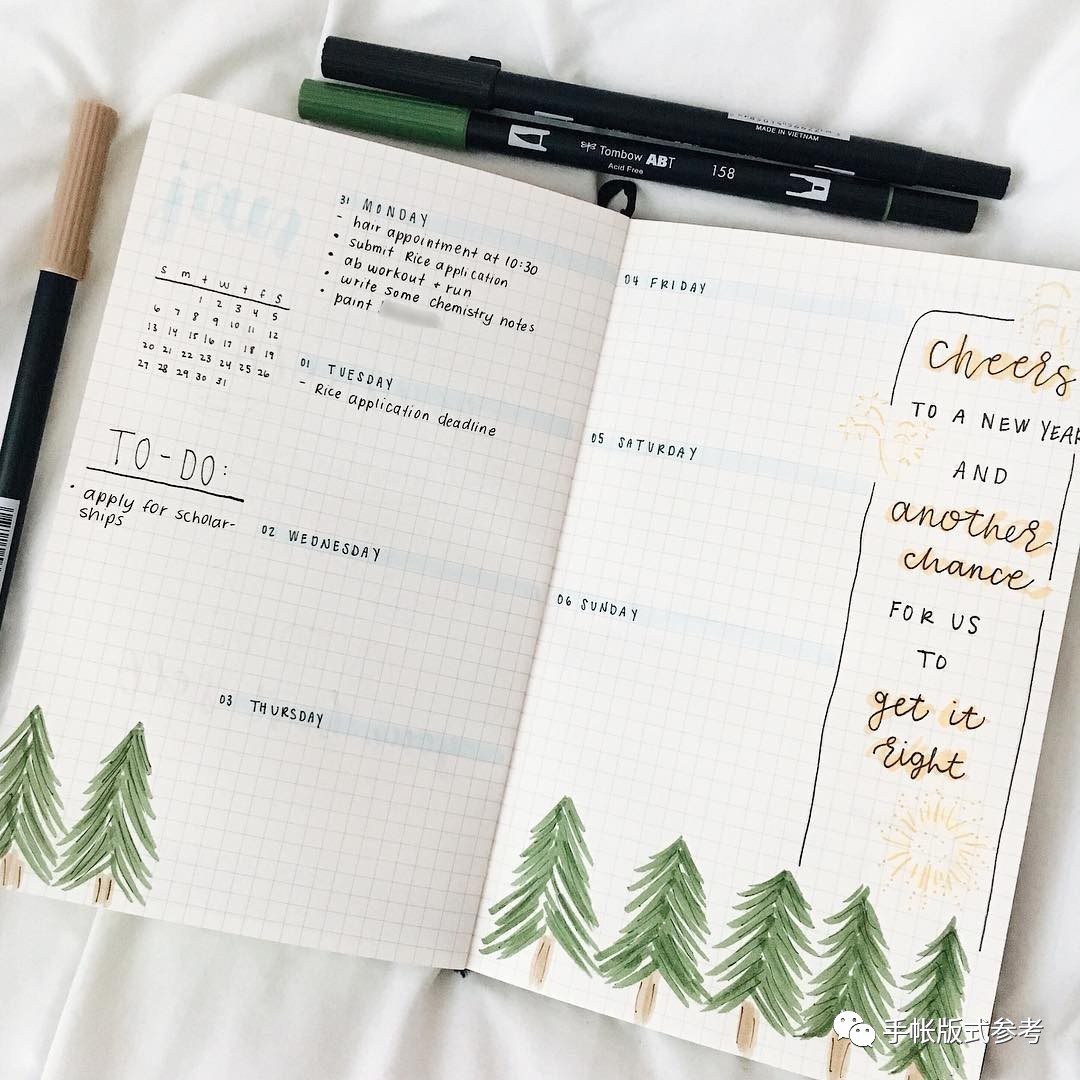 MADE IN VIETNAM
Tombow ABT
158
Acid Free
s m t w t f s
1 2 3 4 5
6 7 8 9 10 11 12
13 14 15 16 17 18 19
20 21 22 23 24 25 26
27 28 29 30 31
TO-DO:
• apply for scholar-
ships
31 MONDAY
- hair appointment at 10:30
• submit Rice application
• ab workout + run
• write some chemistry notes
• paint
01 TUESDAY
- Rice application deadline
02 WEDNESDAY
03 THURSDAY
04 FRIDAY
05 SATURDAY
06 SUNDAY
cheers
TO A NEW YEAR
AND
another
chance
FOR US
TO
get it
right
手帐版式参考